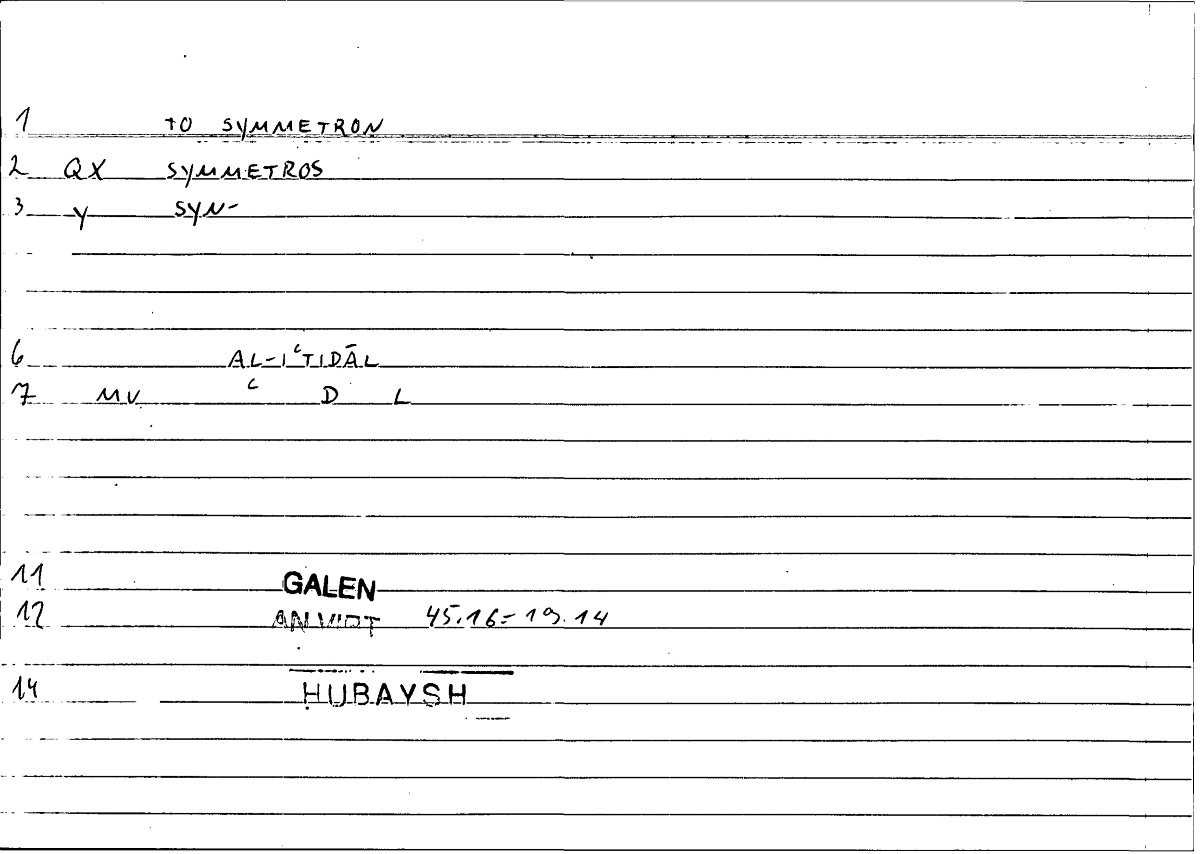 1 TO SYMMETRON
2 QX SYMMETROS
3 Y SYN-
6 AL-IʿTIDĀL
7 MV ʿ D L
11 GALEN
12 AN.VIRT 45.16=19.14
14 ḤUBAYSH